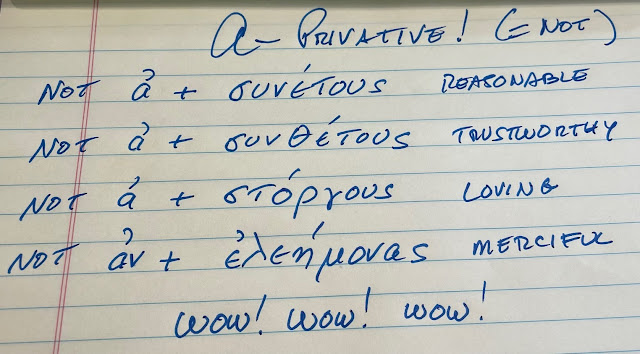 α- PRIVATIVE! (= NOT)
NOT ἀ + συνέτους REASONABLE
NOT ἀ + συνθέτους TRUSTWORTHY
NOT ἀ + στόργους LOVING
NOT ἀν + ἐλεήμονας MERCIFUL
WOW! WOW! WOW!